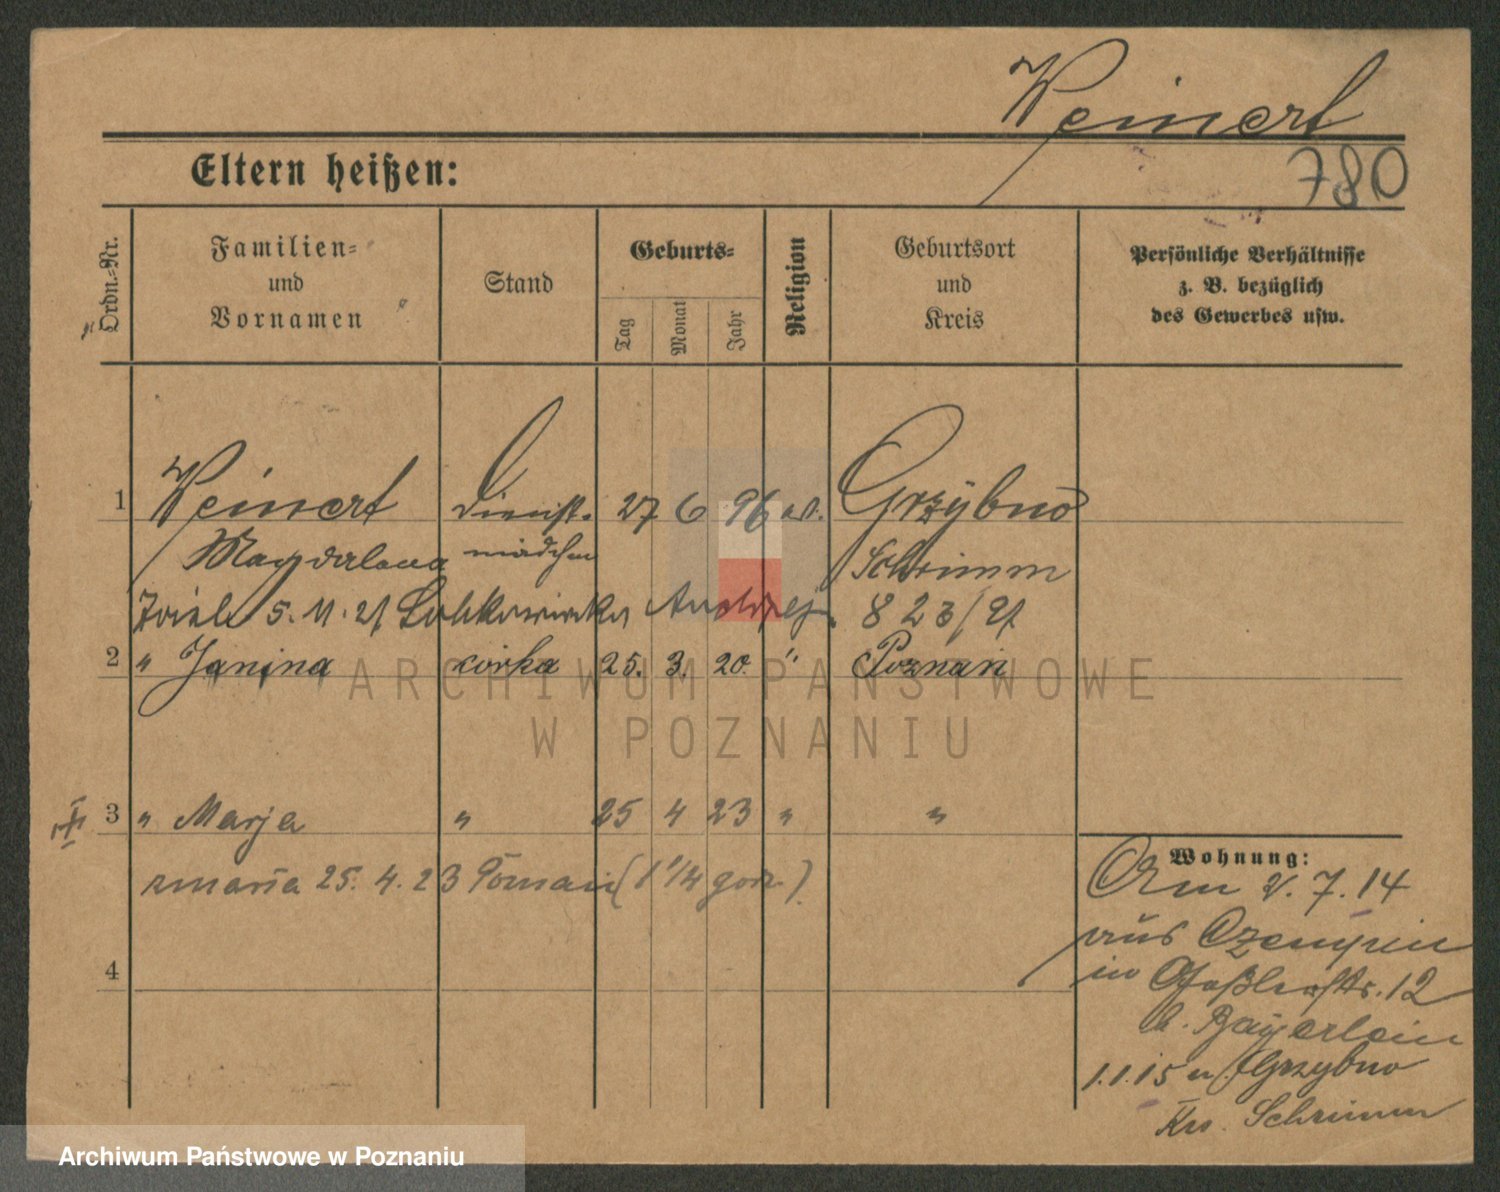 Weinert
Eltern heißen:
780
Ordn.-Nr.
Familien-
und
Vornamen
Stand
Geburts-
Tag
Monat
Jahr
Religion
Geburtsort
und
Kreis
Persönliche Verhältnisse
z. B. bezüglich
des Gewerbes usw.
1 Weinert Dienst- 27 6 96 Grzybno
Magdalena mädchen Schrimm
5. 11. 21 Andrzej 823/21
2 " Janina córka 25. 3. 20. " Poznań
3 " Marja " 25 4 23 " "
zmarła 25. 4. 23 Poznań (1 1/4 godz.)
4
Wohnung:
Am 2. 7. 14
aus Czempin
in Goßlerstr. 12
b. Bayerlein
1.1.15 n. Grzybno
Krs. Schrimm
ARCHIWUM PAŃSTWOWE
W POZNANIU
Archiwum Państwowe w Poznaniu